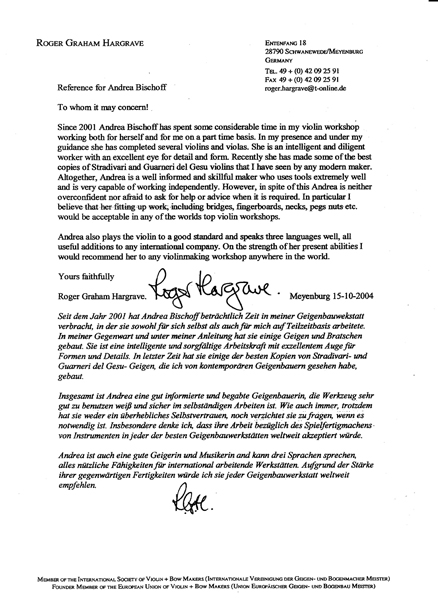 ROGER GRAHAM HARGRAVE
ENTENFANG 18
28790 SCHWANEWEDE/MEYENBURG
GERMANY
TEL. 49 + (0) 42 09 25 91
FAX 49 + (0) 42 09 25 91
roger.hargrave@t-online.de
Reference for Andrea Bischoff
To whom it may concern!
Since 2001 Andrea Bischoff has spent some considerable time in my violin workshop
working both for herself and for me on a part time basis. In my presence and under my
guidance she has completed several violins and violas. She is an intelligent and diligent
worker with an excellent eye for detail and form. Recently she has made some of the best
copies of Stradivari and Guarneri del Gesu violins that I have seen by any modern maker.
Altogether, Andrea is a well informed and skillful maker who uses tools extremely well
and is very capable of working independently. However, in spite of this Andrea is neither
overconfident nor afraid to ask for help or advice when it is required. In particular I
believe that her fitting up work, including bridges, fingerboards, necks, pegs nuts etc.
would be acceptable in any of the worlds top violin workshops.
Andrea also plays the violin to a good standard and speaks three languages well, all
useful additions to any international company. On the strength of her present abilities I
would recommend her to any violinmaking workshop anywhere in the world.
Yours faithfully
Roger Graham Hargrave. Roger Hargrave. Meyenburg 15-10-2004
Seit dem Jahr 2001 hat Andrea Bischoff beträchtlich Zeit in meiner Geigenbauwekstatt
verbracht, in der sie sowohl für sich selbst als auch für mich auf Teilzeitbasis arbeitete.
In meiner Gegenwart und unter meiner Anleitung hat sie einige Geigen und Bratschen
gebaut. Sie ist eine intelligente und sorgfältige Arbeitskraft mit exzellentem Auge für
Formen und Details. In letzter Zeit hat sie einige der besten Kopien von Stradivari- und
Guarneri del Gesu- Geigen, die ich von kontemporären Geigenbauern gesehen habe,
gebaut.
Insgesamt ist Andrea eine gut informierte und begabte Geigenbauerin, die Werkzeug sehr
gut zu benutzen weiß und sicher im selbständigen Arbeiten ist. Wie auch immer, trotzdem
hat sie weder ein überhebliches Selbstvertrauen, noch verzichtet sie zu fragen, wenn es
notwendig ist. Insbesondere denke ich, dass ihre Arbeit bezüglich des Spielfertigmachens-
von Instrumenten in jeder der besten Geigenbauwerkstätten weltweit akzeptiert würde.
Andrea ist auch eine gute Geigerin und Musikerin und kann drei Sprachen sprechen,
alles nützliche Fähigkeiten für international arbeitende Werkstätten. Aufgrund der Stärke
ihrer gegenwärtigen Fertigkeiten würde ich sie jeder Geigenbauwerkstatt weltweit
empfehlen.
MEMBER OF THE INTERNATIONAL SOCIETY OF VIOLIN + BOW MAKERS (INTERNATIONALE VEREINIGUNG DER GEIGEN- UND BOGENMACHER MEISTER)
FOUNDER MEMBER OF THE EUROPEAN UNION OF VIOLIN + BOW MAKERS (UNION EUROPÄISCHER GEIGEN- UND BOGENBAU MEISTER)